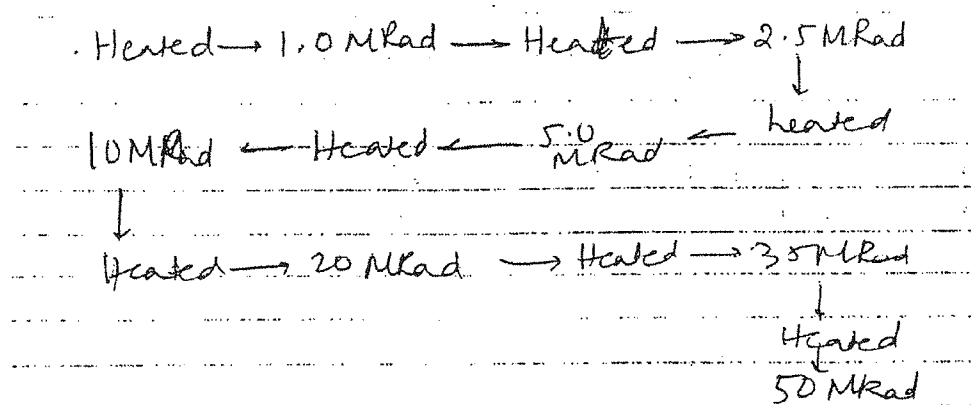 . Heated → 1.0 MRad → Heated → 2.5 MRad
↓
10 MRad ← Heated ← 5.0 MRad ← heated
↓
Heated → 20 MRad → Heated → 35 MRad
↓
Heated
↓
50 MRad